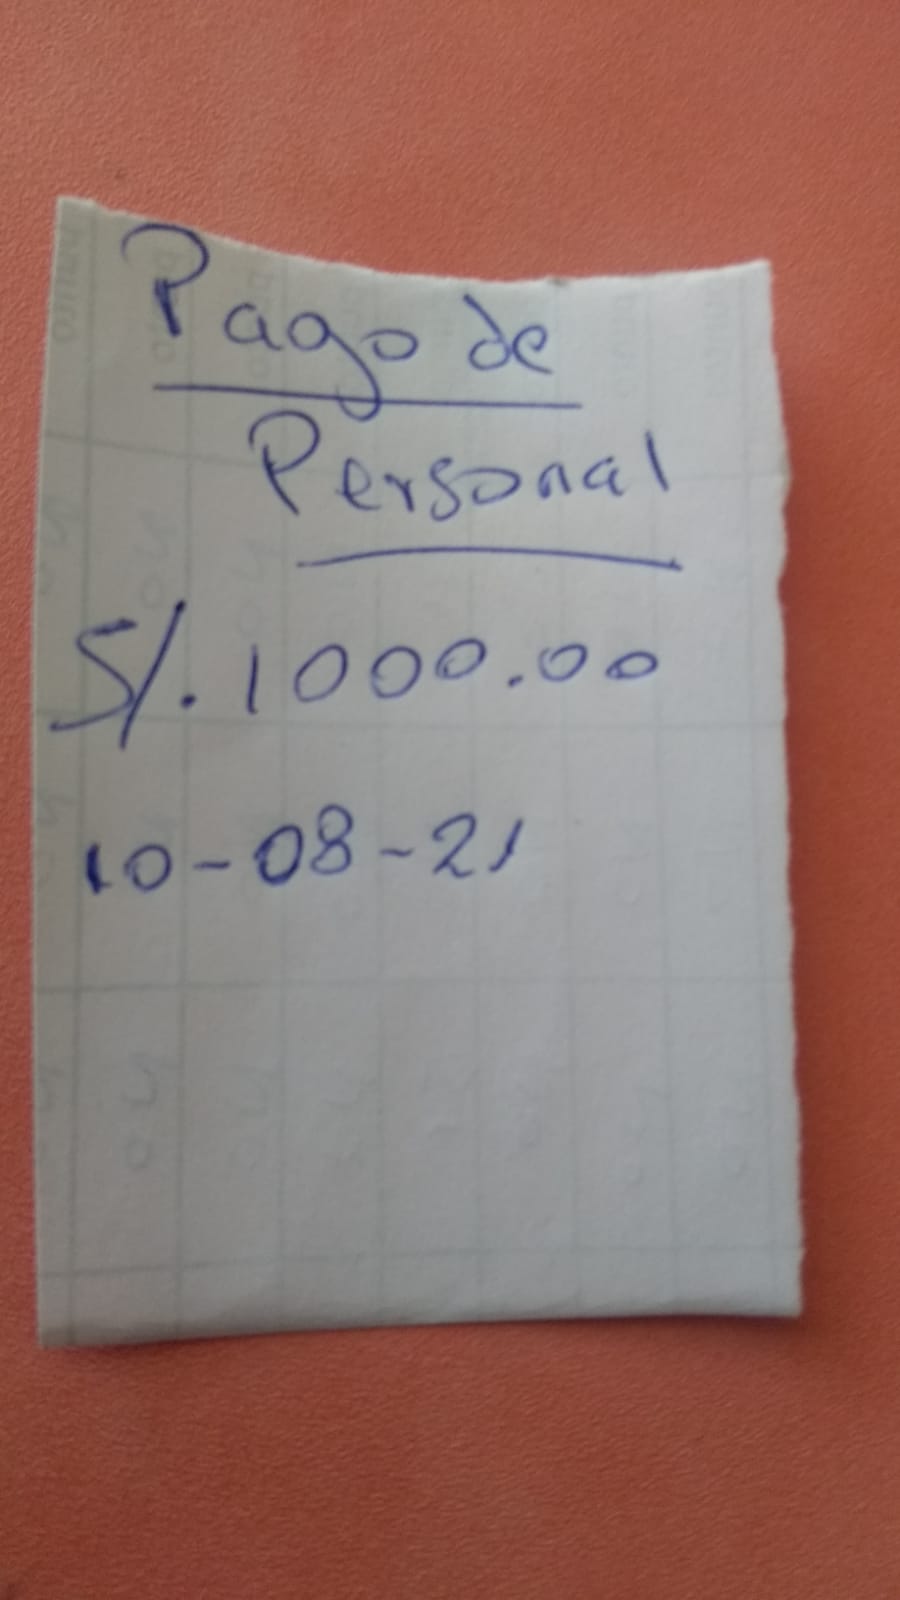 Pago de
Personal
S/. 1000.00
10-08-21